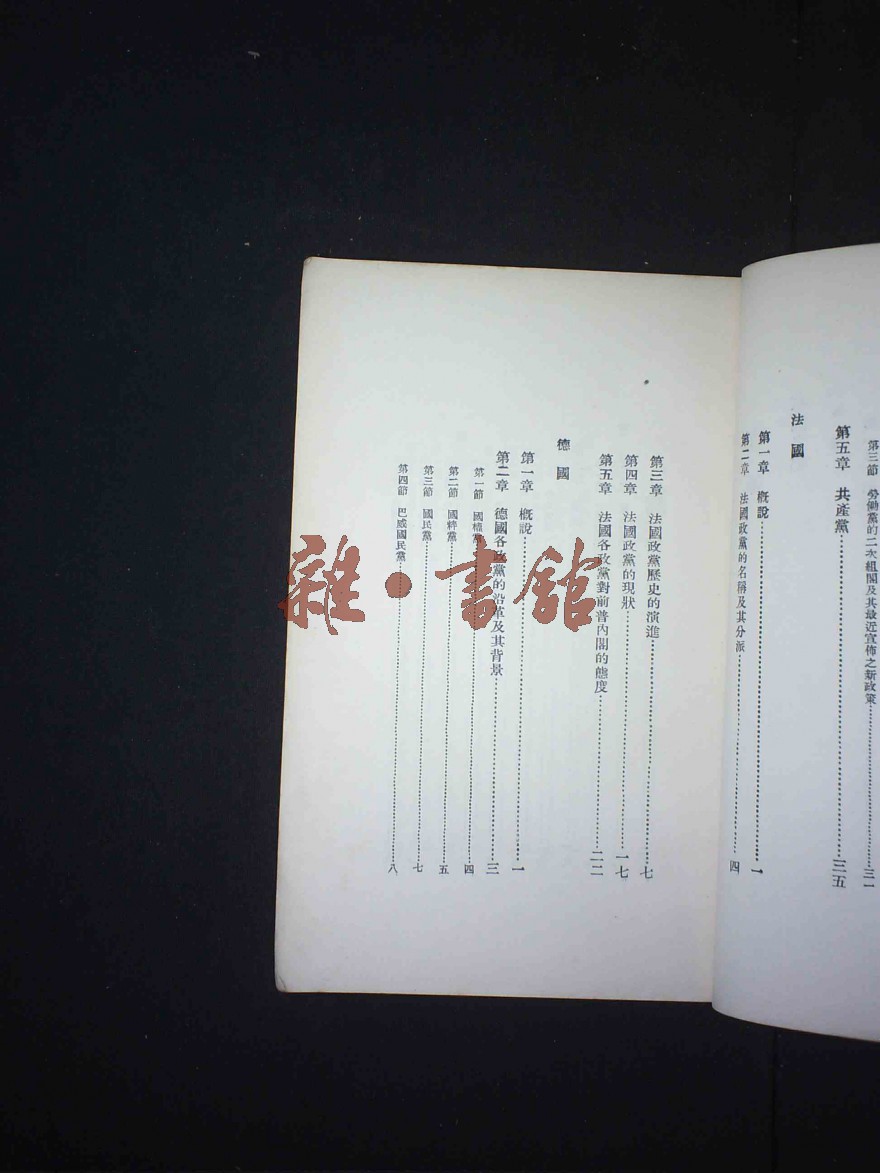 第三節　勞働黨的二次組閣及其最近宣佈之新政策……三一
第五章　共產黨……三五
法國
第一章　概說……一
第二章　法國政黨的名稱及其分派……四
第三章　法國政黨歷史的演進……七
第四章　法國政黨的現狀……一七
第五章　法國各政黨對前普內閣的態度……二二
德國
第一章　概說……一
第二章　德國各政黨的沿革及其背景……三
第一節　國權黨……四
第二節　國粹黨……五
第三節　國民黨……七
第四節　巴威國民黨……八
雜·書館